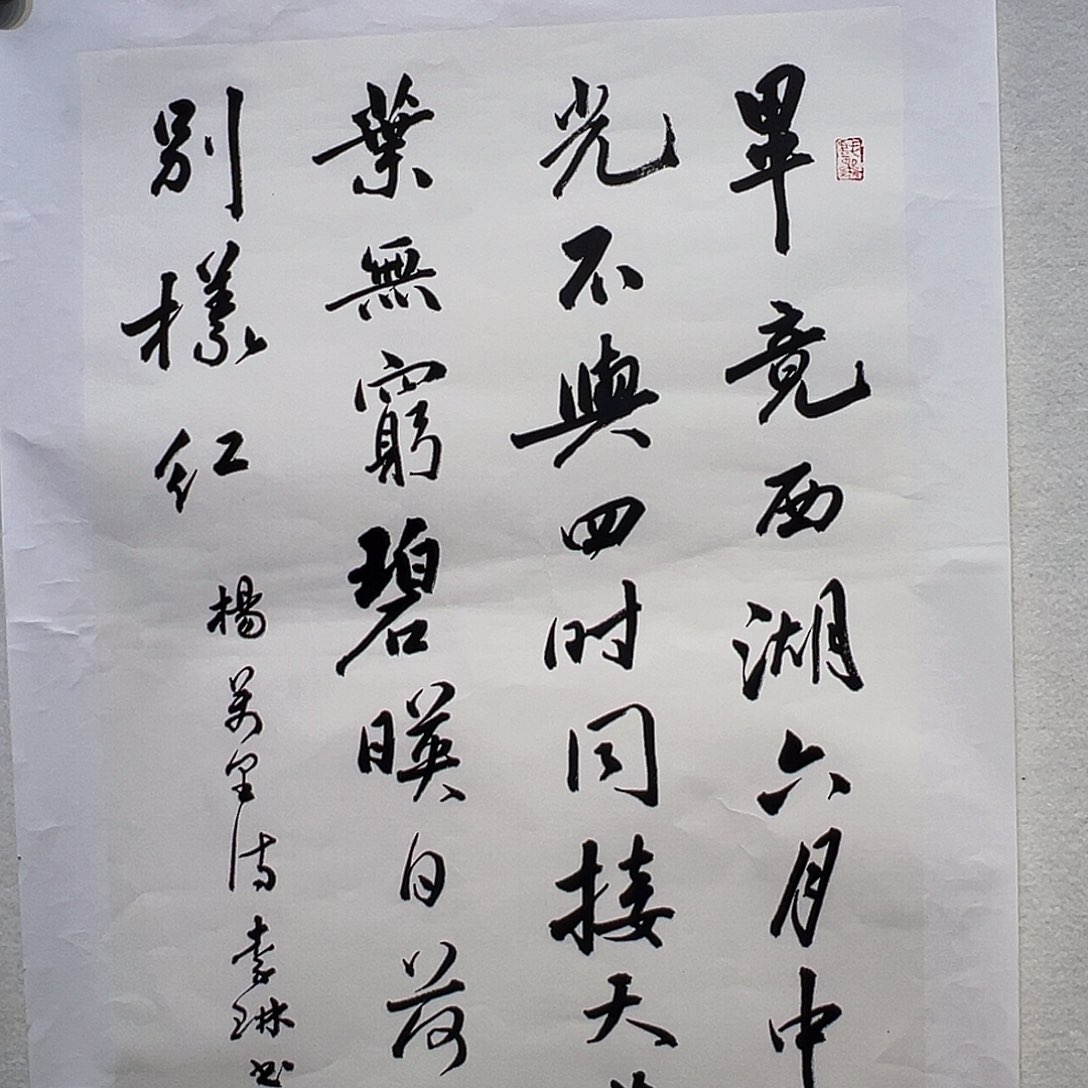 畢竟西湖六月中
光不與四时同接天
葉無窮碧暎日荷
别樣红
楊萬里诗 李琳书